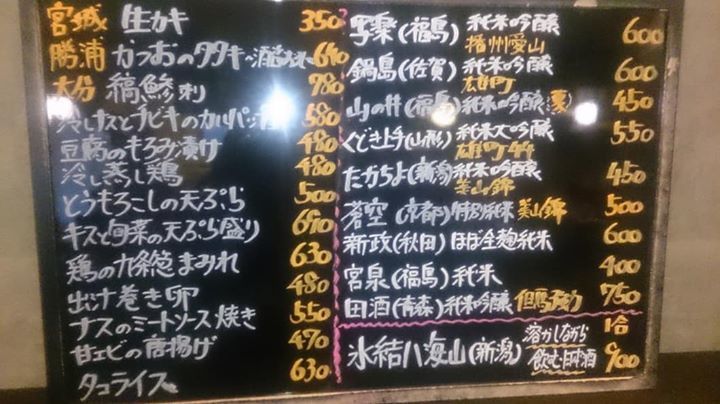 宮城 生カキ 350
勝浦 かつおのタタキ 640
大分 縞鯵刺 780
冷しナスとエビキのカルパッチョ 580
豆腐のもろみ漬け 480
冷し蒸し鶏 480
とうもろこしの天ぷら 500
キスと旬菜の天ぷら盛り 690
鶏の九条葱まみれ 630
出汁巻き卵 480
ナスのミートソース焼き 550
甘エビの唐揚げ 470
タコライス 630
写樂(福島) 純米吟醸 播州愛山 600
鍋島(佐賀) 純米吟醸 雄町 600
山の井(福島)純米吟醸(夏) 450
くどき上手(山形) 純米大吟醸 雄町 550
たかちよ(新潟)純米吟醸 美山錦 450
蒼空(京都)特別純米 美山錦 500
新政(秋田)ほぼ全麹純米 600
宮泉(福島)純米 400
田酒(青森)純米吟醸 但馬強力 750
一合
氷結八海山(新潟) 溶かしながら飲む日本酒 900